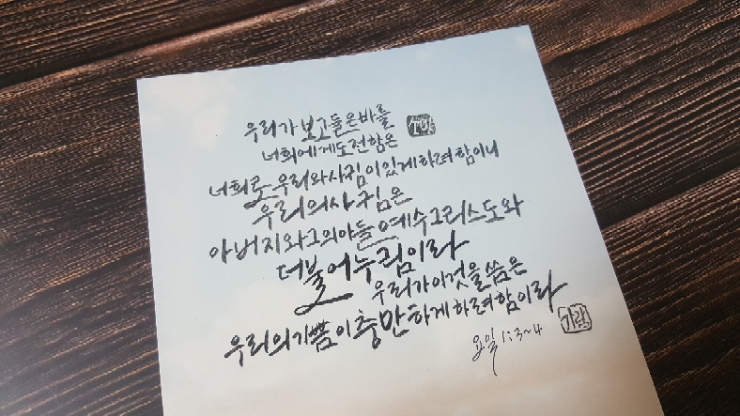 우리가 보고 들은 바를
너희에게도 전함은
너희로 우리와 사귐이 있게 하려 함이니
우리의 사귐은
아버지와 그의 아들 예수 그리스도와
더불어 누림이라
우리가 이것을 씀은
우리의 기쁨이 충만하게 하려 함이라
요일 1:3~4